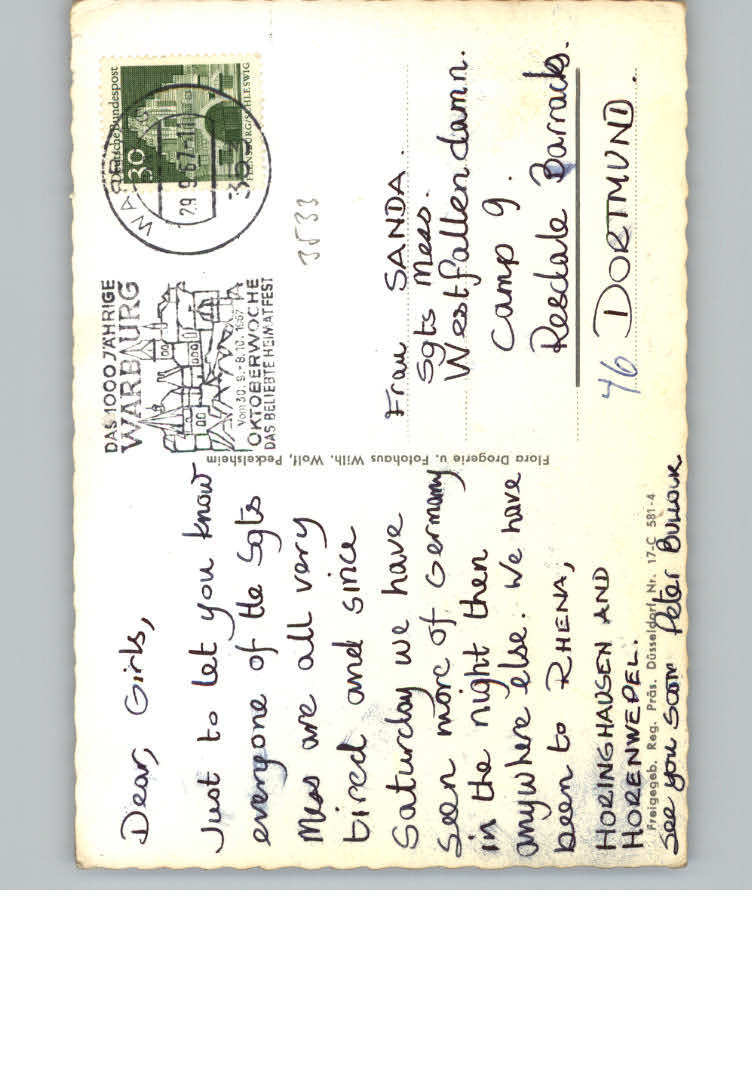 Dear, Girls,
Just to let you know
everyone of the Sgts
Mess are all very
tired and since
Saturday we have
seen more of Germany
in the night then
anywhere else. We have
been to RHENA,
HORINGHAUSEN AND
HORENWEPEL.
See you soon Peter Bullock
Freigegeb. Reg. Präs. Düsseldorf Nr. 17-C 581-4
Flora Drogerie u. Fotohaus Wilh. Wolf, Peckelsheim
DAS 1000 JÄHRIGE
WARBURG
Vom 30.9.-8.10.1967
OKTOBERWOCHE
DAS BELIEBTE HEIMATFEST
29.9.67-10
353
Deutsche Bundespost
30
FLENSBURG/SCHLESWIG
3533
Frau SANDA.
Sgts Mess.
Westfallendamn.
Camp 9.
Resdale Barracks.
46 DORTMUND.